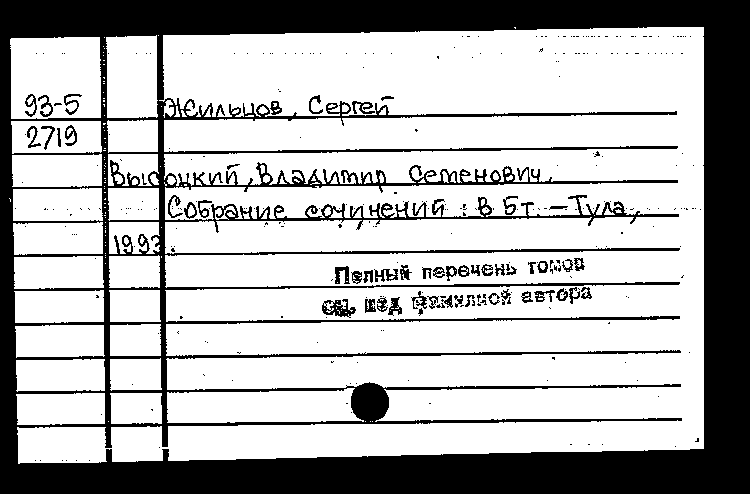 93-5 Жильцов, Сергей
2719
Высоцкий, Владимир Семенович.
Собрание сочинений : в 5т. – Тула,
1993.
Полный перечень томов
см. под фамилией автора